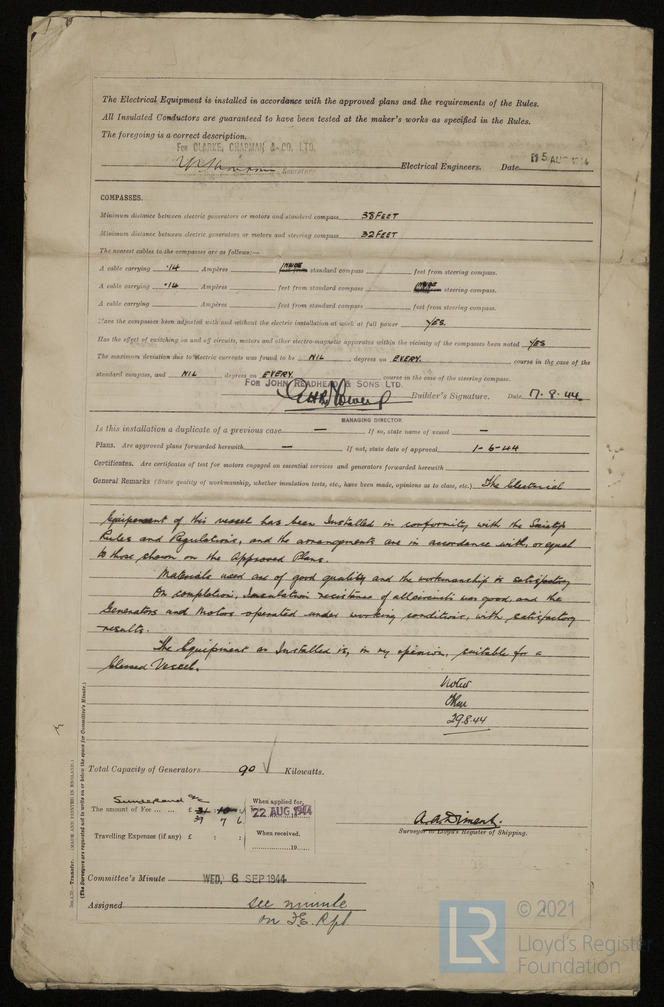 The Electrical Equipment is installed in accordance with the approved plans and the requirements of the Rules.
All Insulated Conductors are guaranteed to have been tested at the maker's works as specified in the Rules.
The foregoing is a correct description.
FOR CLARKE, CHAPMAN & CO. LTD.
Secretary Electrical Engineers. Date 15 AUG 1944
COMPASSES.
Minimum distance between electric generators or motors and standard compass 38 FEET
Minimum distance between electric generators or motors and steering compass 32 FEET
The nearest cables to the compasses are as follows:—
A cable carrying .14 Ampères INSIDE standard compass feet from steering compass.
A cable carrying .14 Ampères feet from standard compass INSIDE steering compass.
A cable carrying Ampères feet from standard compass feet from steering compass.
Have the compasses been adjusted with and without the electric installation at work at full power YES.
Has the effect of switching on and off circuits, motors and other electro-magnetic apparatus within the vicinity of the compasses been noted YES
The maximum deviation due to electric currents was found to be NIL degrees on EVERY. course in the case of the
standard compass, and NIL degrees on EVERY. course in the case of the steering compass.
FOR JOHN READHEAD & SONS LTD.
Builder's Signature. Date 17.8.44
MANAGING DIRECTOR.
Is this installation a duplicate of a previous case — If so, state name of vessel —
Plans. Are approved plans forwarded herewith — If not, state date of approval 1-6-44
Certificates. Are certificates of test for motors engaged on essential services and generators forwarded herewith
General Remarks (State quality of workmanship, whether insulation tests, etc., have been made, opinions as to class, etc.) The Electrical
Equipment of this vessel has been Installed in conformity with the Society's
Rules and Regulations, and the arrangements are in accordance with, or equal
to those shown on the Approved Plans.
Materials used are of good quality and the workmanship is satisfactory
On completion, Insulation resistance of all circuits was good, and the
Generators and Motors operated under working conditions, with satisfactory
results.
The Equipment as Installed is, in my opinion, suitable for a
Classed Vessel.
Noted
29.8.44
Total Capacity of Generators 90 Kilowatts.
Sunderland
The amount of Fee ... ... £ 31 : 10 : When applied for,
39 7 6 22 AUG 1944
Travelling Expenses (if any) £ : : When received.
19
A. A. Diment.
Surveyor to Lloyd's Register of Shipping.
Committee's Minute WED. 6 SEP 1944
Assigned see minute
on F.E. Rpt
Transfer. (MADE AND PRINTED IN ENGLAND.)
(The Surveyors are requested not to write on or below the space for Committee's Minute.)
LR
© 2021
Lloyd's Register
Foundation